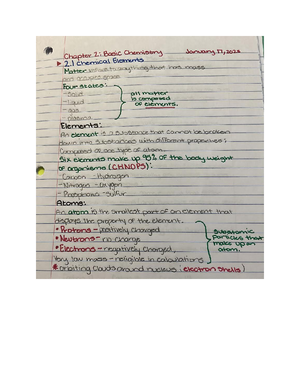 Chapter 2: Basic Chemistry January 17, 2023
2.1 Chemical Elements
Matter refers to anything that has mass
and occupies space
Four states:
- Solid
- Liquid
- Gas
- Plasma
all matter
is composed
of elements.
Elements:
An element is a substance that cannot be broken
down into substances with different properties;
composed of one type of atom.
Six elements make up 95% of the body weight
of organisms (CHNOPS):
- Carbon - Hydrogen
- Nitrogen - Oxygen
- Phosphorus - Sulfur
Atoms:
An atom is the smallest part of an element that
displays the property of the element.
Protons - positively charged
Neutrons - no charge
Electrons - negatively charged
Subatomic
particles that
make up an
atom.
Very low mass - negligible in calculations
orbiting clouds around nucleus (electron shells)